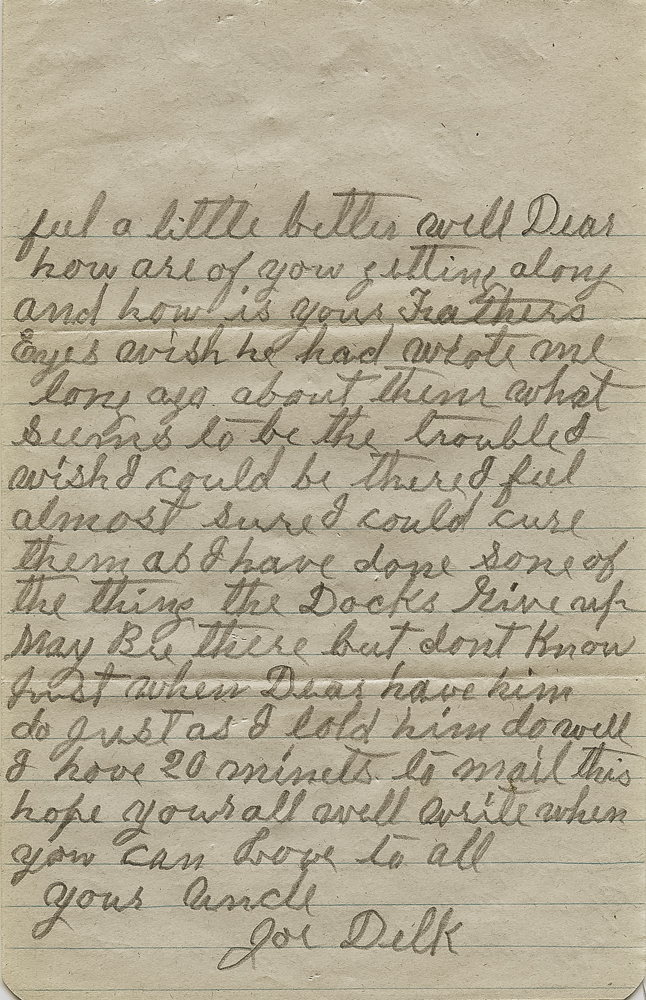 feel a little better well Dear
how are of you getting along
and how is your Fathers
Eyes wish he had wrote me
long ago about them what
seems to be the trouble I
wish I could be there I feel
almost sure I could cure
them as I have done some of
the thing the Docks Give up
May Bee there but dont Know
Just when Dear have him
do Just as I told him do well
I have 20 minets to mail this
hope your all well write when
you can Love to all
your Uncle
Joe Delk